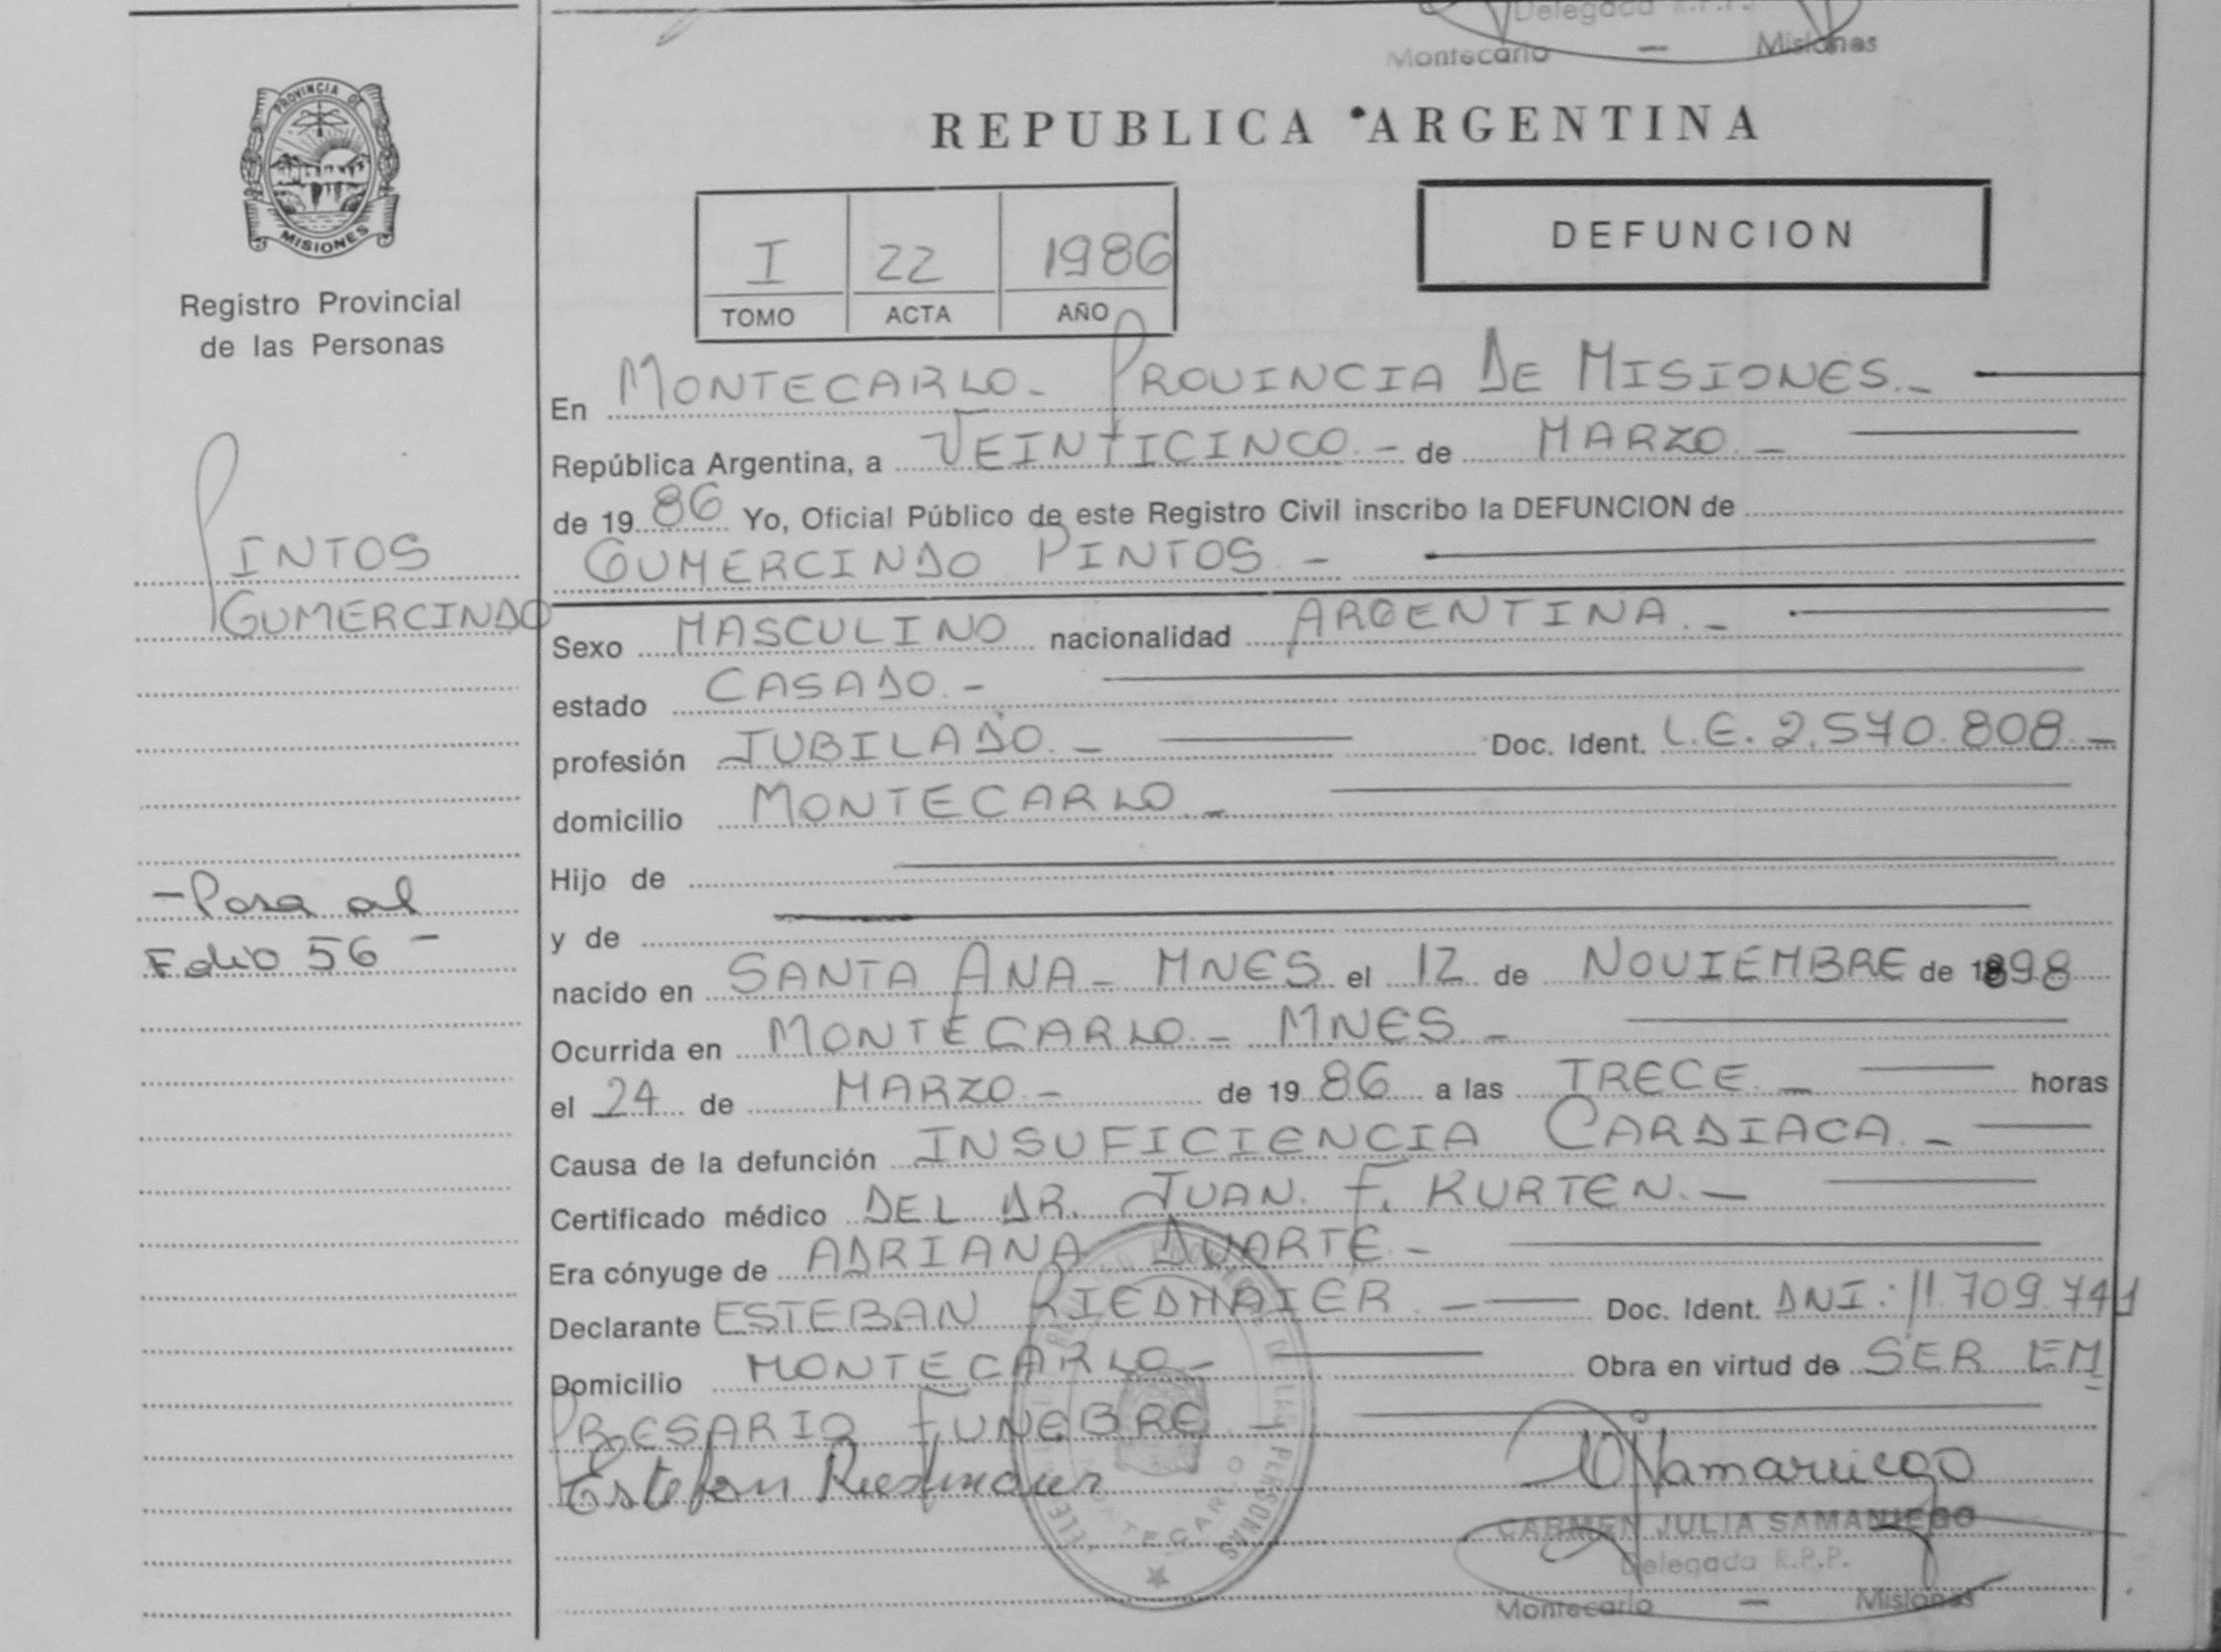 Delegada R.P.P.
Montecarlo — Misiones
PROVINCIA DE
MISIONES
Registro Provincial
de las Personas
REPUBLICA ARGENTINA
I 22 1986
TOMO ACTA AÑO
DEFUNCION
PINTOS
GUMERCINDO
- Pasa al
Folio 56 -
En MONTECARLO - PROVINCIA DE MISIONES.-
República Argentina, a VEINTICINCO.- de MARZO.-
de 1986 Yo, Oficial Público de este Registro Civil inscribo la DEFUNCION de
GUMERCINDO PINTOS -
Sexo MASCULINO nacionalidad ARGENTINA.-
estado CASADO.-
profesión JUBILADO.- Doc. Ident. L.E. 2.570.808.-
domicilio MONTECARLO.-
Hijo de
y de
nacido en SANTA ANA - MNES el 12 de NOVIEMBRE de 1898
Ocurrida en MONTECARLO.- MNES.-
el 24 de MARZO.- de 1986 a las TRECE.- horas
Causa de la defunción INSUFICIENCIA CARDIACA.-
Certificado médico DEL DR. JUAN. F. KURTEN.-
Era cónyuge de ADRIANA DUARTE.-
Declarante ESTEBAN RIEDMAIER.- Doc. Ident. DNI: 11.709.741
Domicilio MONTECARLO.- Obra en virtud de SER EM
PRESARIO FUNEBRE.-
Esteban Riedmaier
CARMEN JULIA SAMANIEGO
Delegada R.P.P.
Montecarlo — Misiones